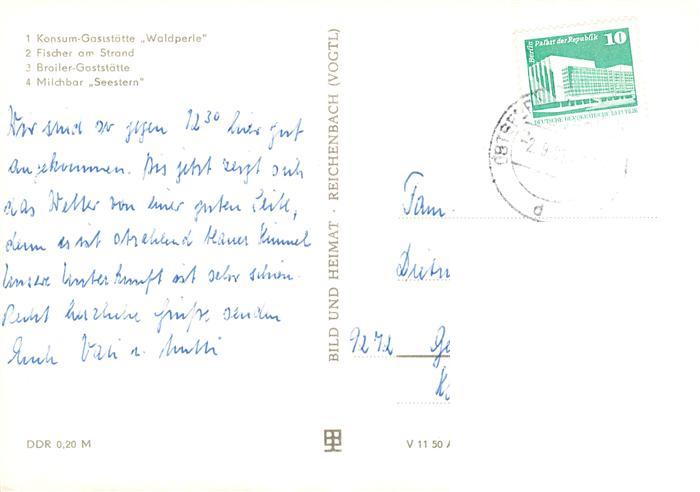 1 Konsum-Gaststätte „Waldperle"
2 Fischer am Strand
3 Broiler-Gaststätte
4 Milchbar „Seestern"
Wir sind so gegen 12³⁰ hier gut
angekommen. Bis jetzt zeigt sich
das Wetter von einer guten Seite,
denn es ist strahlend blauer Himmel
Unsere Unterkunft ist sehr schön.
Recht herzliche Grüße senden
Euch Vati u. Mutti
DDR 0,20 M
BILD UND HEIMAT · REICHENBACH (VOGTL)
V 11 50
Berlin Palast der Republik 10
DEUTSCHE DEMOKRATISCHE REPUBLIK
OSTSEEBAD
d
Fam.
Dietm
9272 Ge